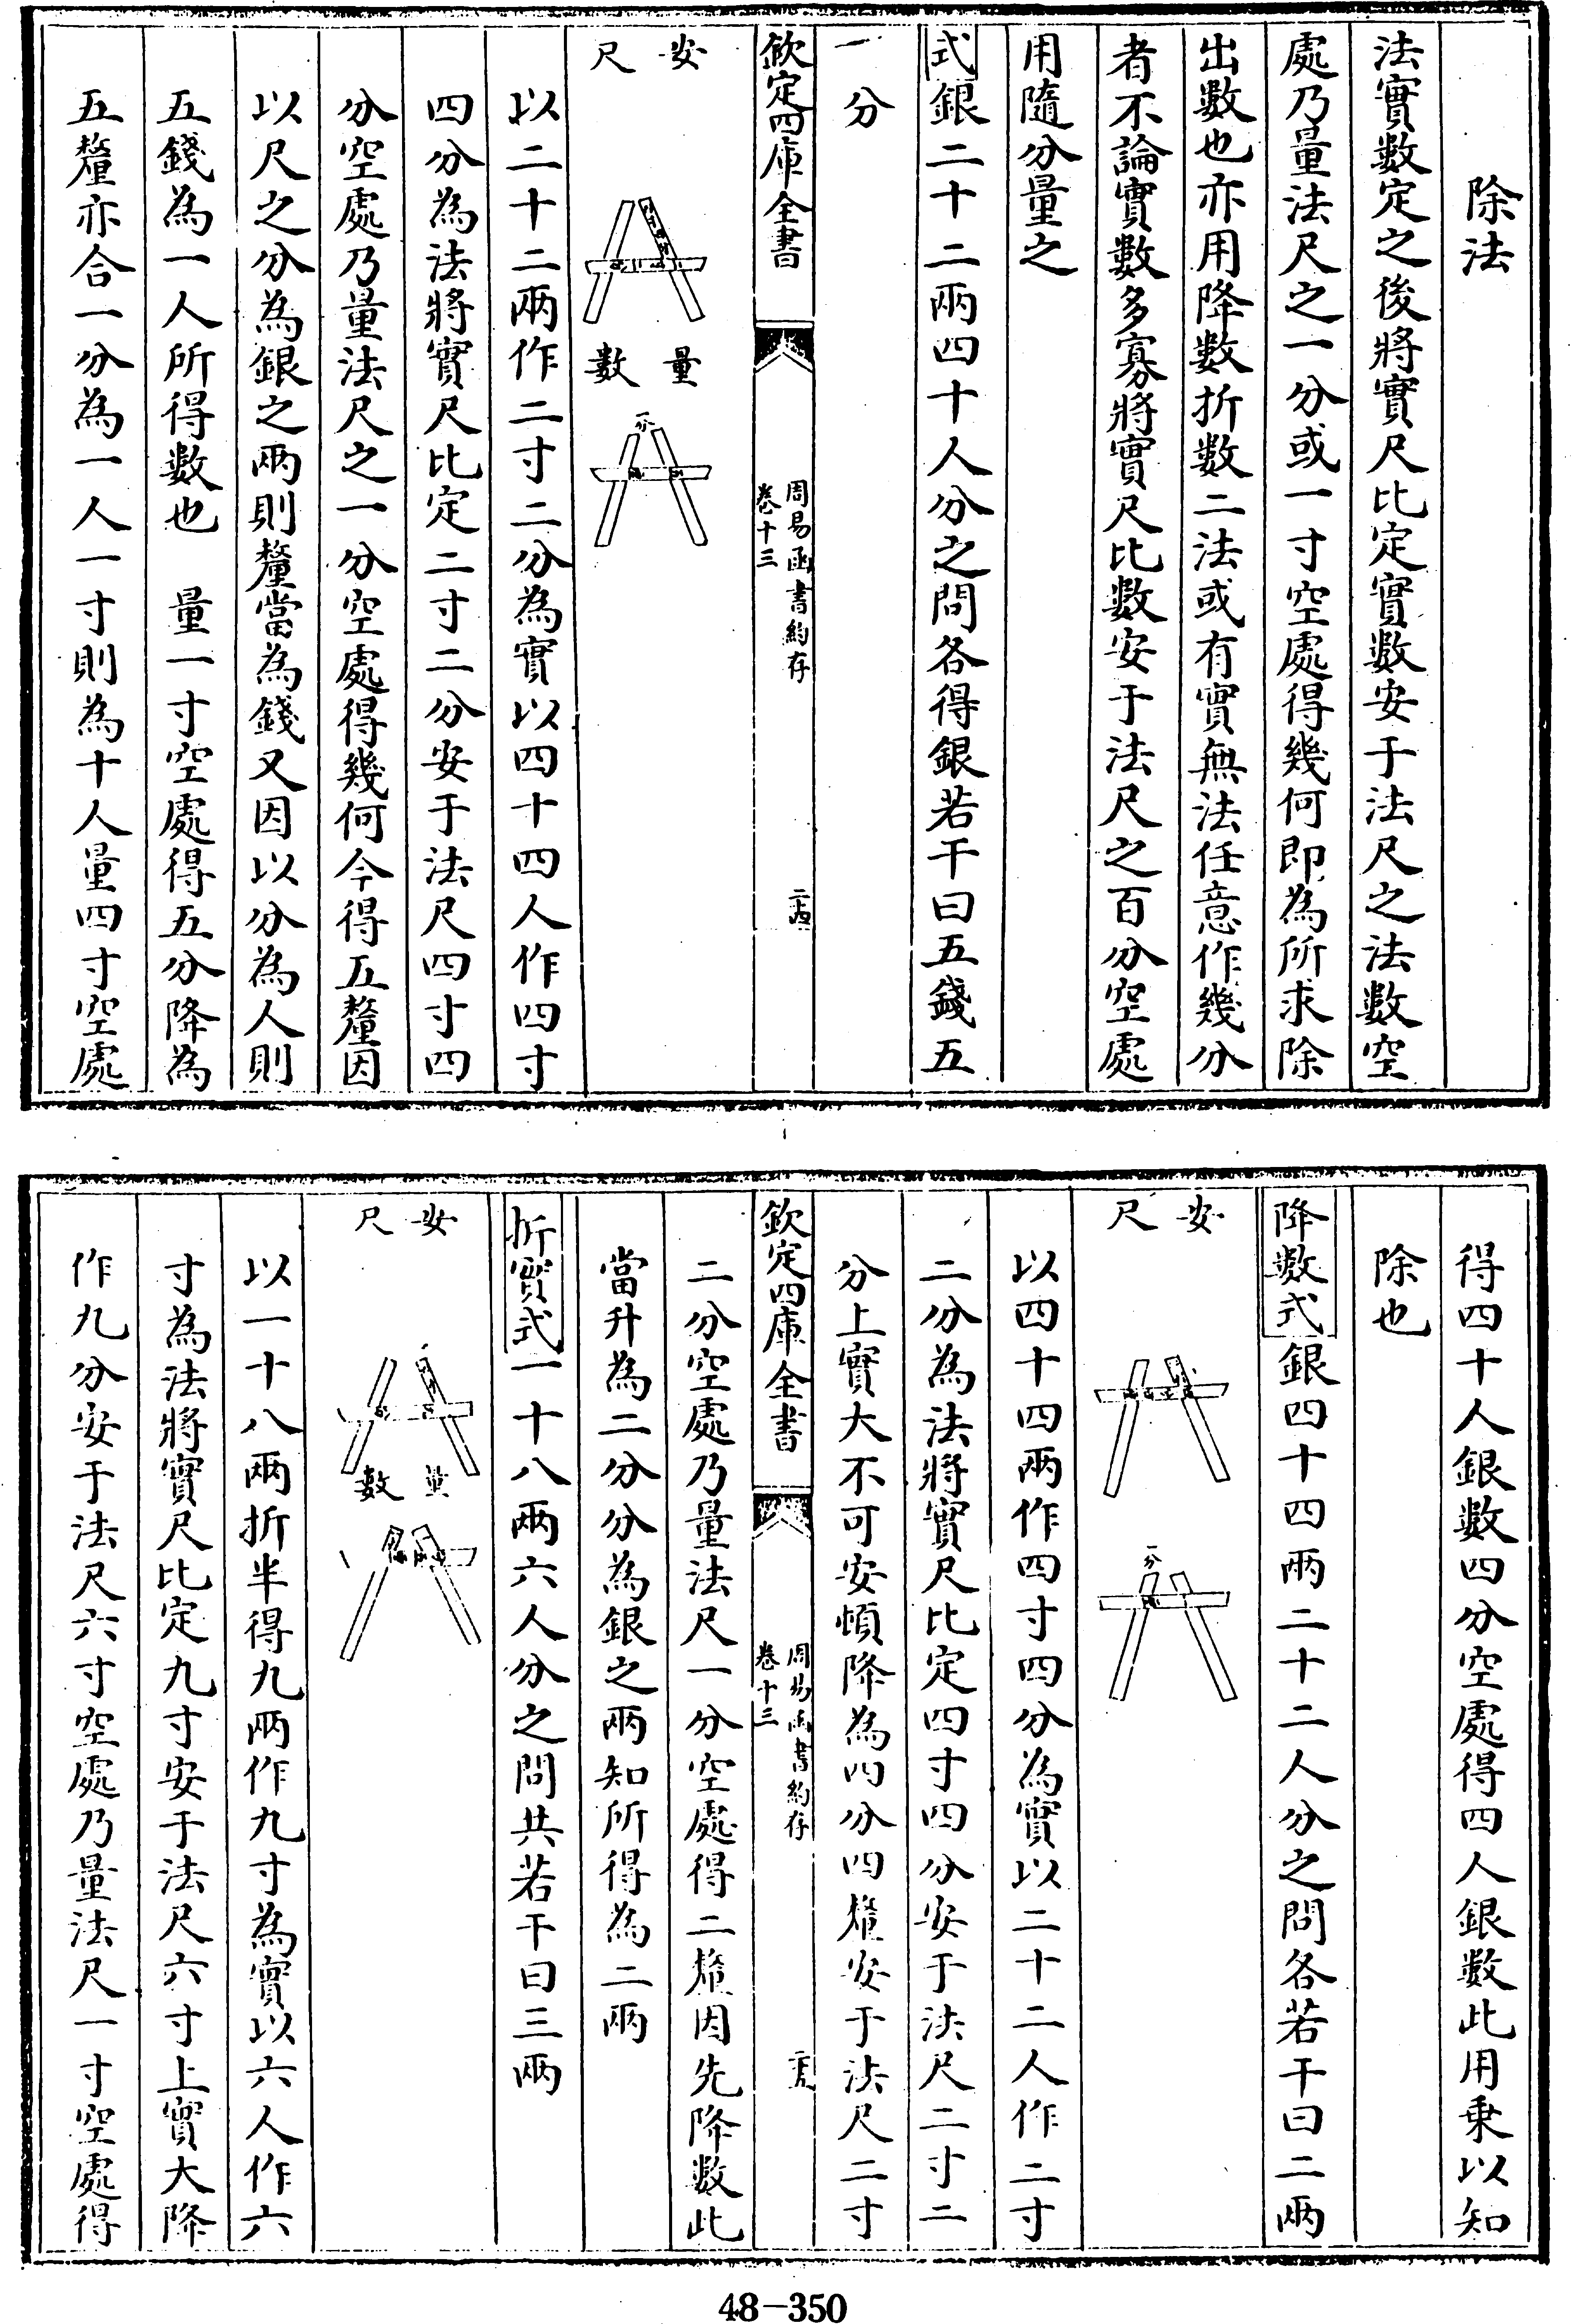 除法
法實數定之後將實尺比定實數安于法尺之法數空
處乃量法尺之一分或一寸空處得幾何即為所求除
出數也亦用降數折數二法或有實無法任意作幾分
者不論實數多寡將實尺比數安于法尺之百分空處
用隨分量之
式銀二十二兩四十人分之問各得銀若干曰五錢五
一分
欽定四庫全書
周易函書約存
卷十三
安尺
量數
一分
以二十二兩作二寸二分為實以四十四人作四寸
四分為法將實尺比定二寸二分安于法尺四寸四
分空處乃量法尺之一分空處得幾何今得五釐因
以尺之分為銀之兩則釐當為錢又因以分為人則
五錢為一人所得數也　量一寸空處得五分降為
五釐亦合一分為一人一寸則為十人量四寸空處
得四十人銀數四分空處得四人銀數此用乗以知
除也
降數式銀四十四兩二十二人分之問各若干曰二兩
安尺
一分
以四十四兩作四寸四分為實以二十二人作二寸
二分為法將實尺比定四寸四分安于法尺二寸二
分上實大不可安頓降為四分四釐安于法尺二寸
欽定四庫全書
周易函書約存
卷十三
二分空處乃量法尺一分空處得二釐因先降數此
當升為二分分為銀之兩知所得為二兩
折實式一十八兩六人分之問共若干曰三兩
安尺
量數
以一十八兩折半得九兩作九寸為實以六人作六
寸為法將實尺比定九寸安于法尺六寸上實大降
作九分安于法尺六寸空處乃量法尺一寸空處得
48-350